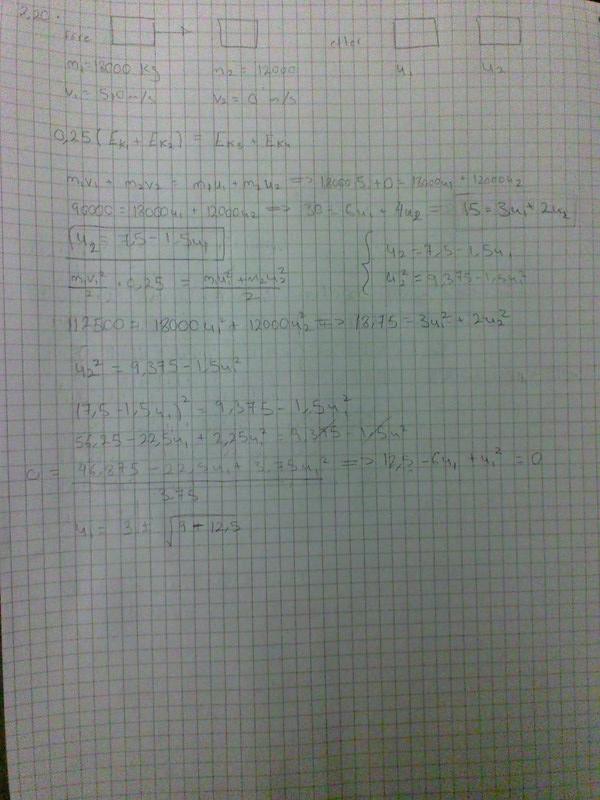 2.20.
före → efter
m₁ = 18000 kg m₂ = 12000 u₁ u₂
v₁ = 5,0 m/s v₂ = 0 m/s
0,25(E_k₁ + E_k₂) = E_k₃ + E_k₄
m₁v₁ + m₂v₂ = m₁u₁ + m₂u₂ => 18000·5 + 0 = 18000u₁ + 12000u₂
90000 = 18000u₁ + 12000u₂ => 30 = 6u₁ + 4u₂ = 15 = 3u₁ + 2u₂
u₂ = 7,5 - 1,5u₁
{ u₂ = 7,5 - 1,5u₁
u₂² = 9,375 - 1,5u₁²
m₁v₁²/2 · 0,25 = m₁u₁² + m₂u₂²/2
112500 = 18000u₁² + 12000u₂² => 18,75 = 3u₁² + 2u₂²
u₂² = 9,375 - 1,5u₁²
(7,5 - 1,5u₁)² = 9,375 - 1,5u₁²
56,25 - 22,5u₁ + 2,25u₁² = 9,375 - 1,5u₁²
0 = 46,875 - 22,5u₁ + 3,75u₁²/3,75 => 12,5 - 6u₁ + u₁² = 0
u₁ = 3 ± √9 - 12,5